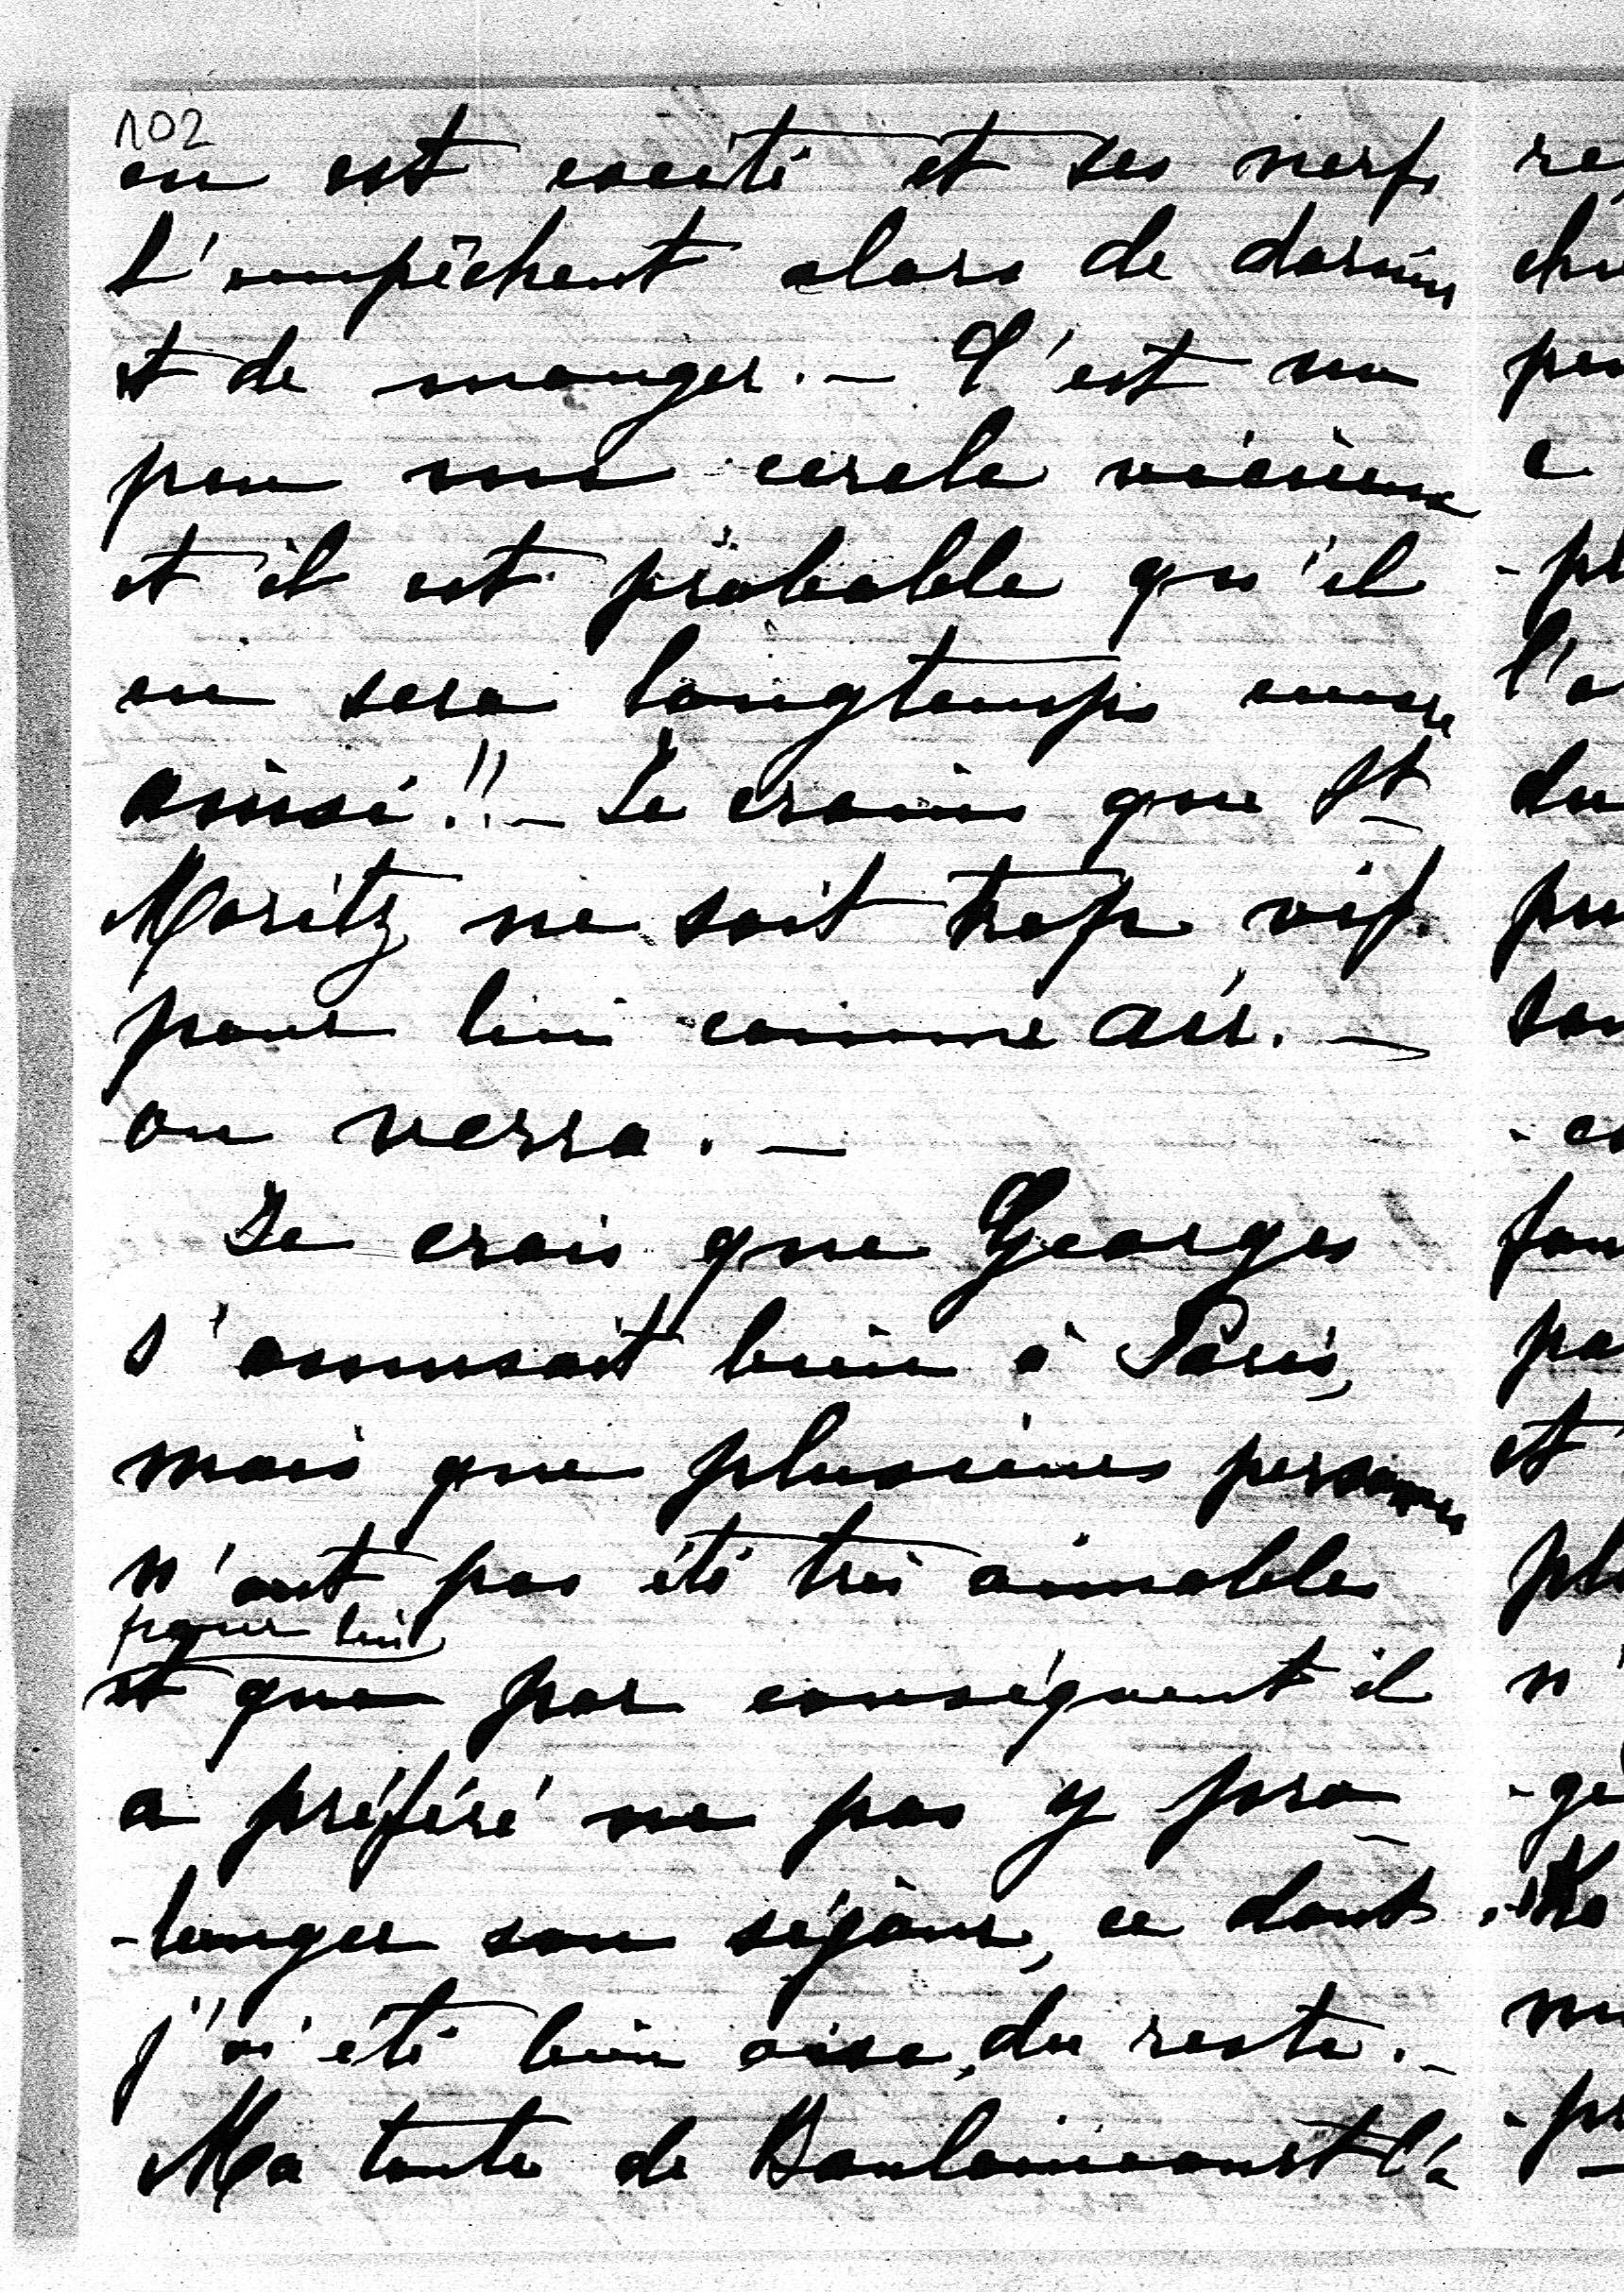 102
en est excité et ses nerfs
l'empêchent alors de dormir
et de manger. — C'est un
peu un cercle vicieux
et il est probable qu'il
en sera longtemps encore
ainsi !! — Je crains que St
Moritz ne soit trop vif
pour lui comme air. —
on verra. —
Je crois que Georges
s'amusait bien à Paris,
mais que plusieurs personnes
n'ont pas été très aimables
pour lui
et que par conséquent il
a préféré ne pas y pro-
-longer son séjour, ce dont
j'ai été bien aise, du reste. —
Ma tante de Baulaincourt l'a